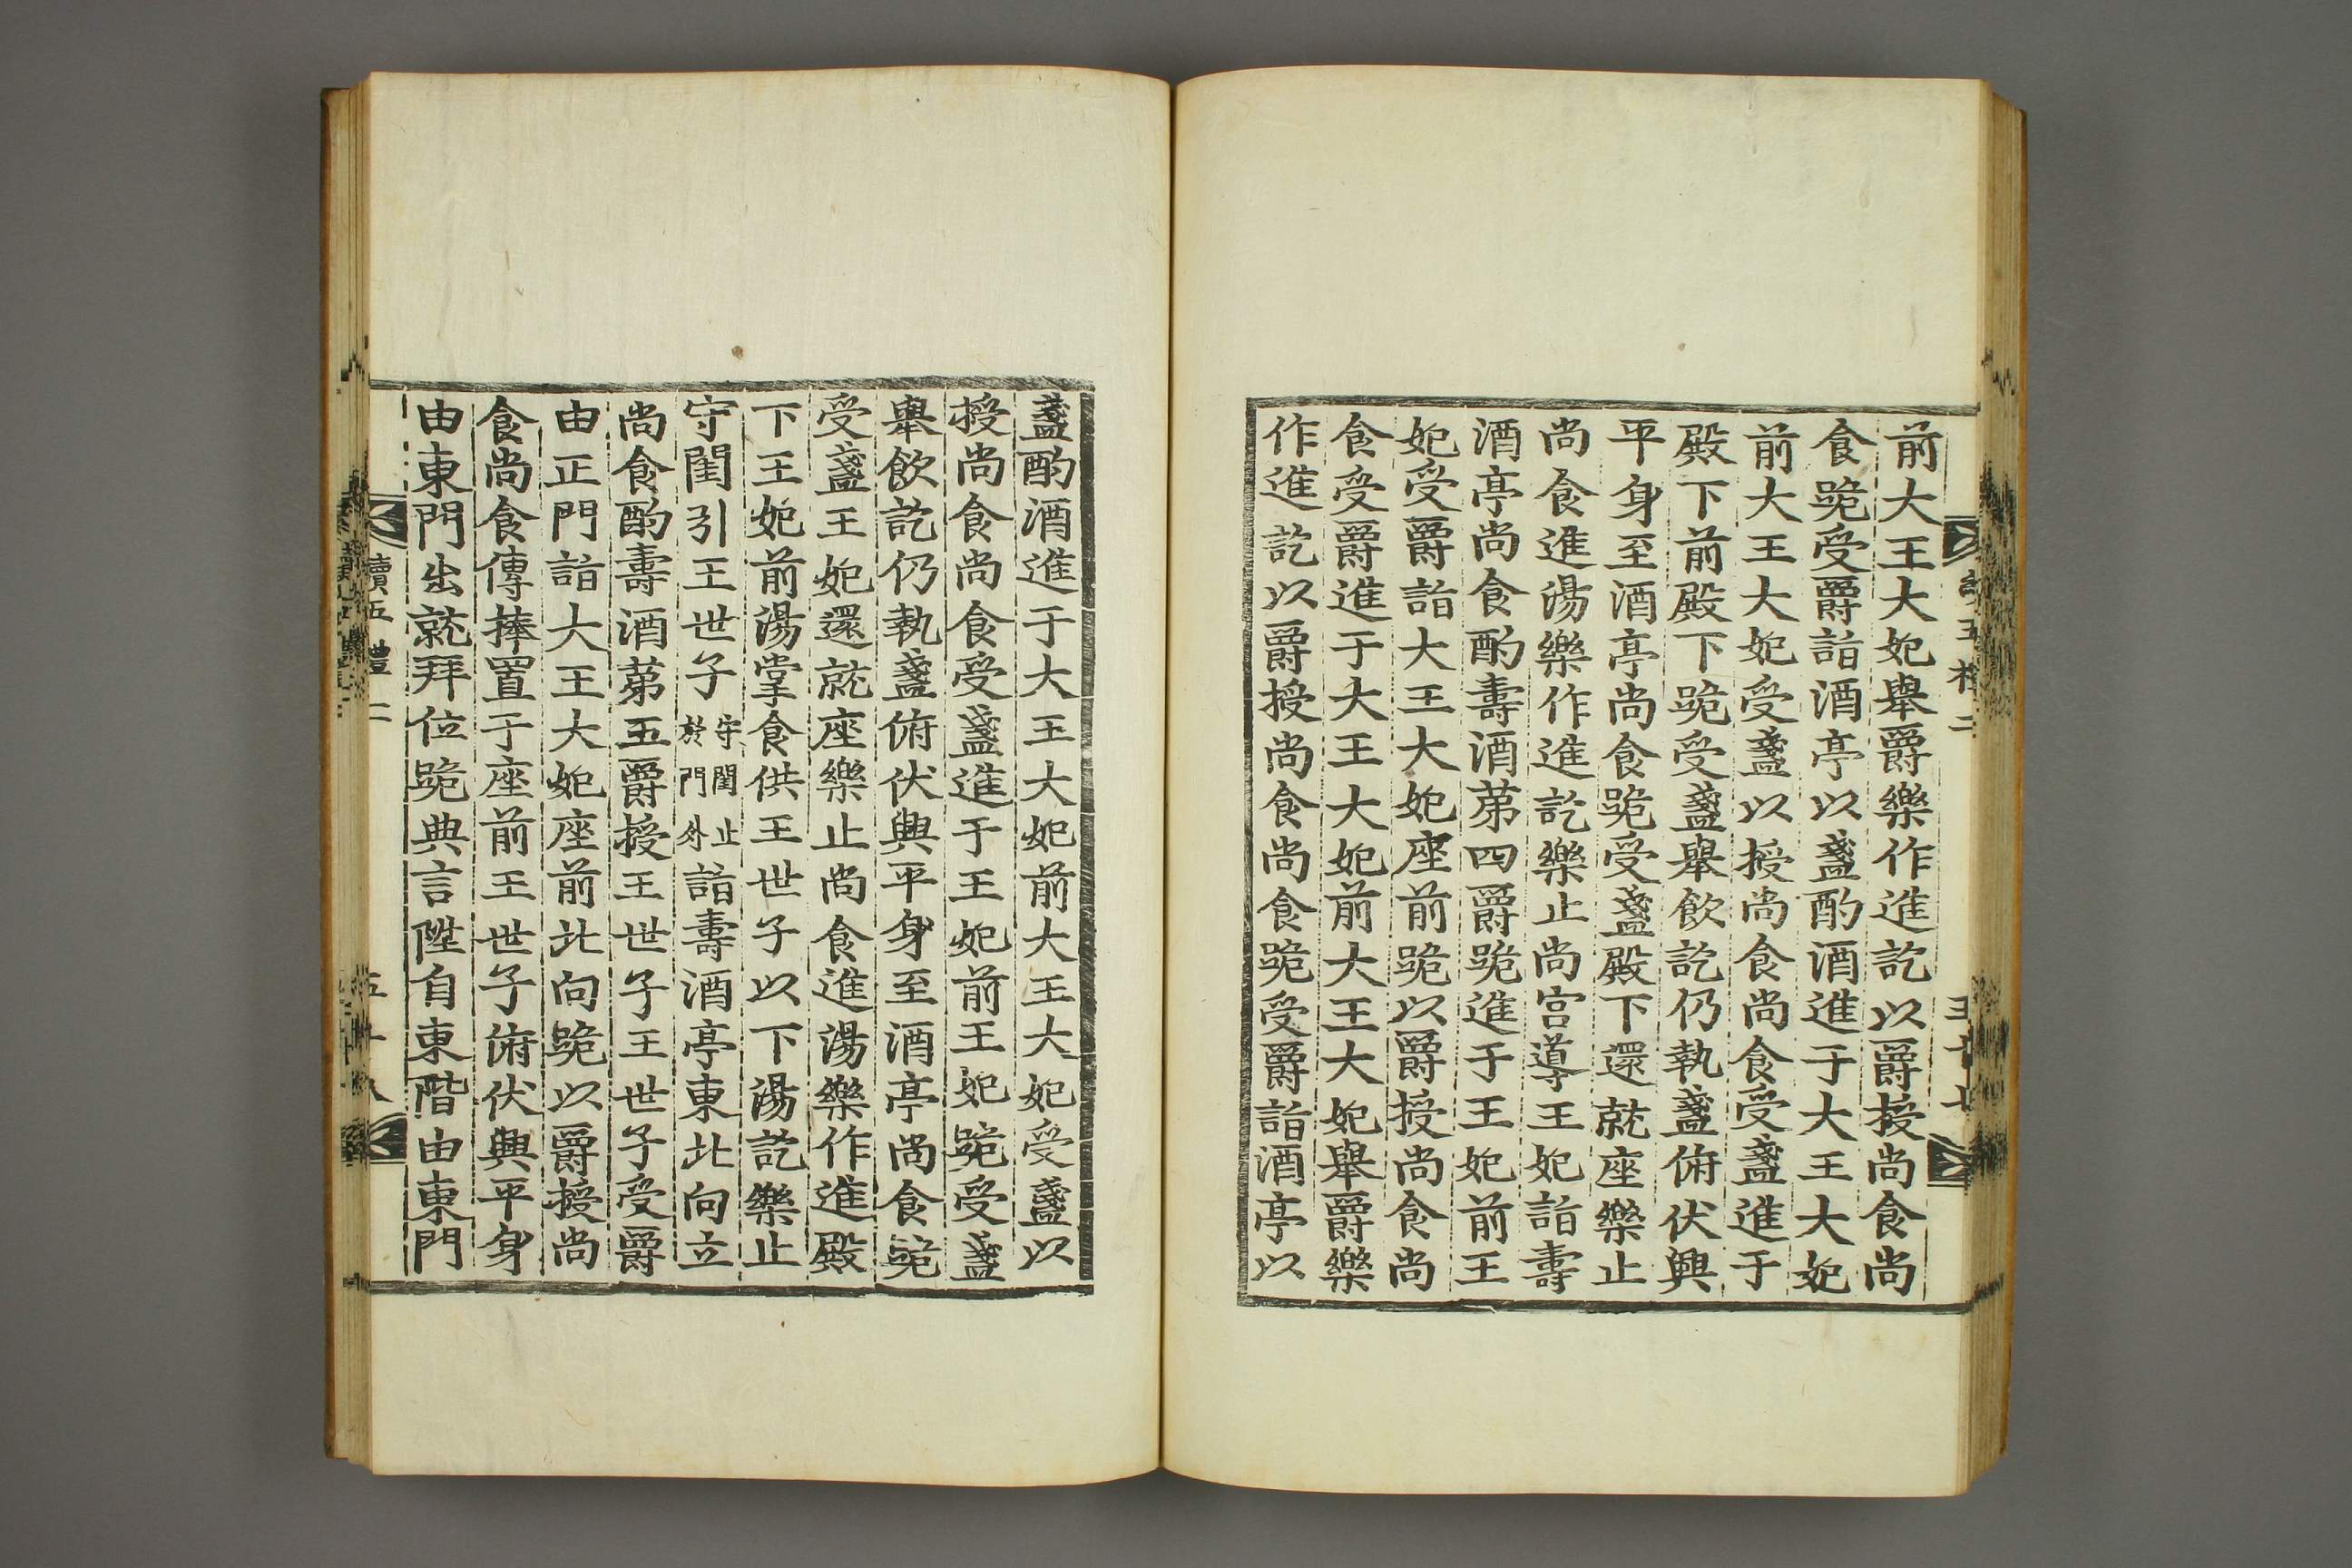 前大王大妃舉爵樂作進訖以爵授尚食尚
食跪受爵詣酒亭以盞酌酒進于大王大妃
前大王大妃受盞以授尚食尚食受盞進于
殿下前殿下跪受盞舉飮訖仍執盞俯伏興
平身至酒亭尚食跪受盞殿下還就座樂止
尚食進湯樂作進訖樂止尚宮導王妃詣壽
酒亭尚食酌壽酒苐四爵跪進于王妃前王
妃受爵詣大王大妃座前跪以爵授尚食尚
食受爵進于大王大妃前大王大妃舉爵樂
作進訖以爵授尚食尚食跪受爵詣酒亭以
盞酌酒進于大王大妃前大王大妃受盞以
授尚食尚食受盞進于王妃前王妃跪受盞
舉飮訖仍執盞俯伏興平身至酒亭尚食跪
受盞王妃還就座樂止尚食進湯樂作進殿
下王妃前湯掌食供王世子以下湯訖樂止
守閨引王世子守閨止於門外詣壽酒亭東北向立
尚食酌壽酒苐五爵授王世子王世子受爵
由正門詣大王大妃座前北向跪以爵授尚
食尚食傳捧置于座前王世子俯伏興平身
由東門出就拜位跪典言陞自東階由東門
續五禮二
五十八